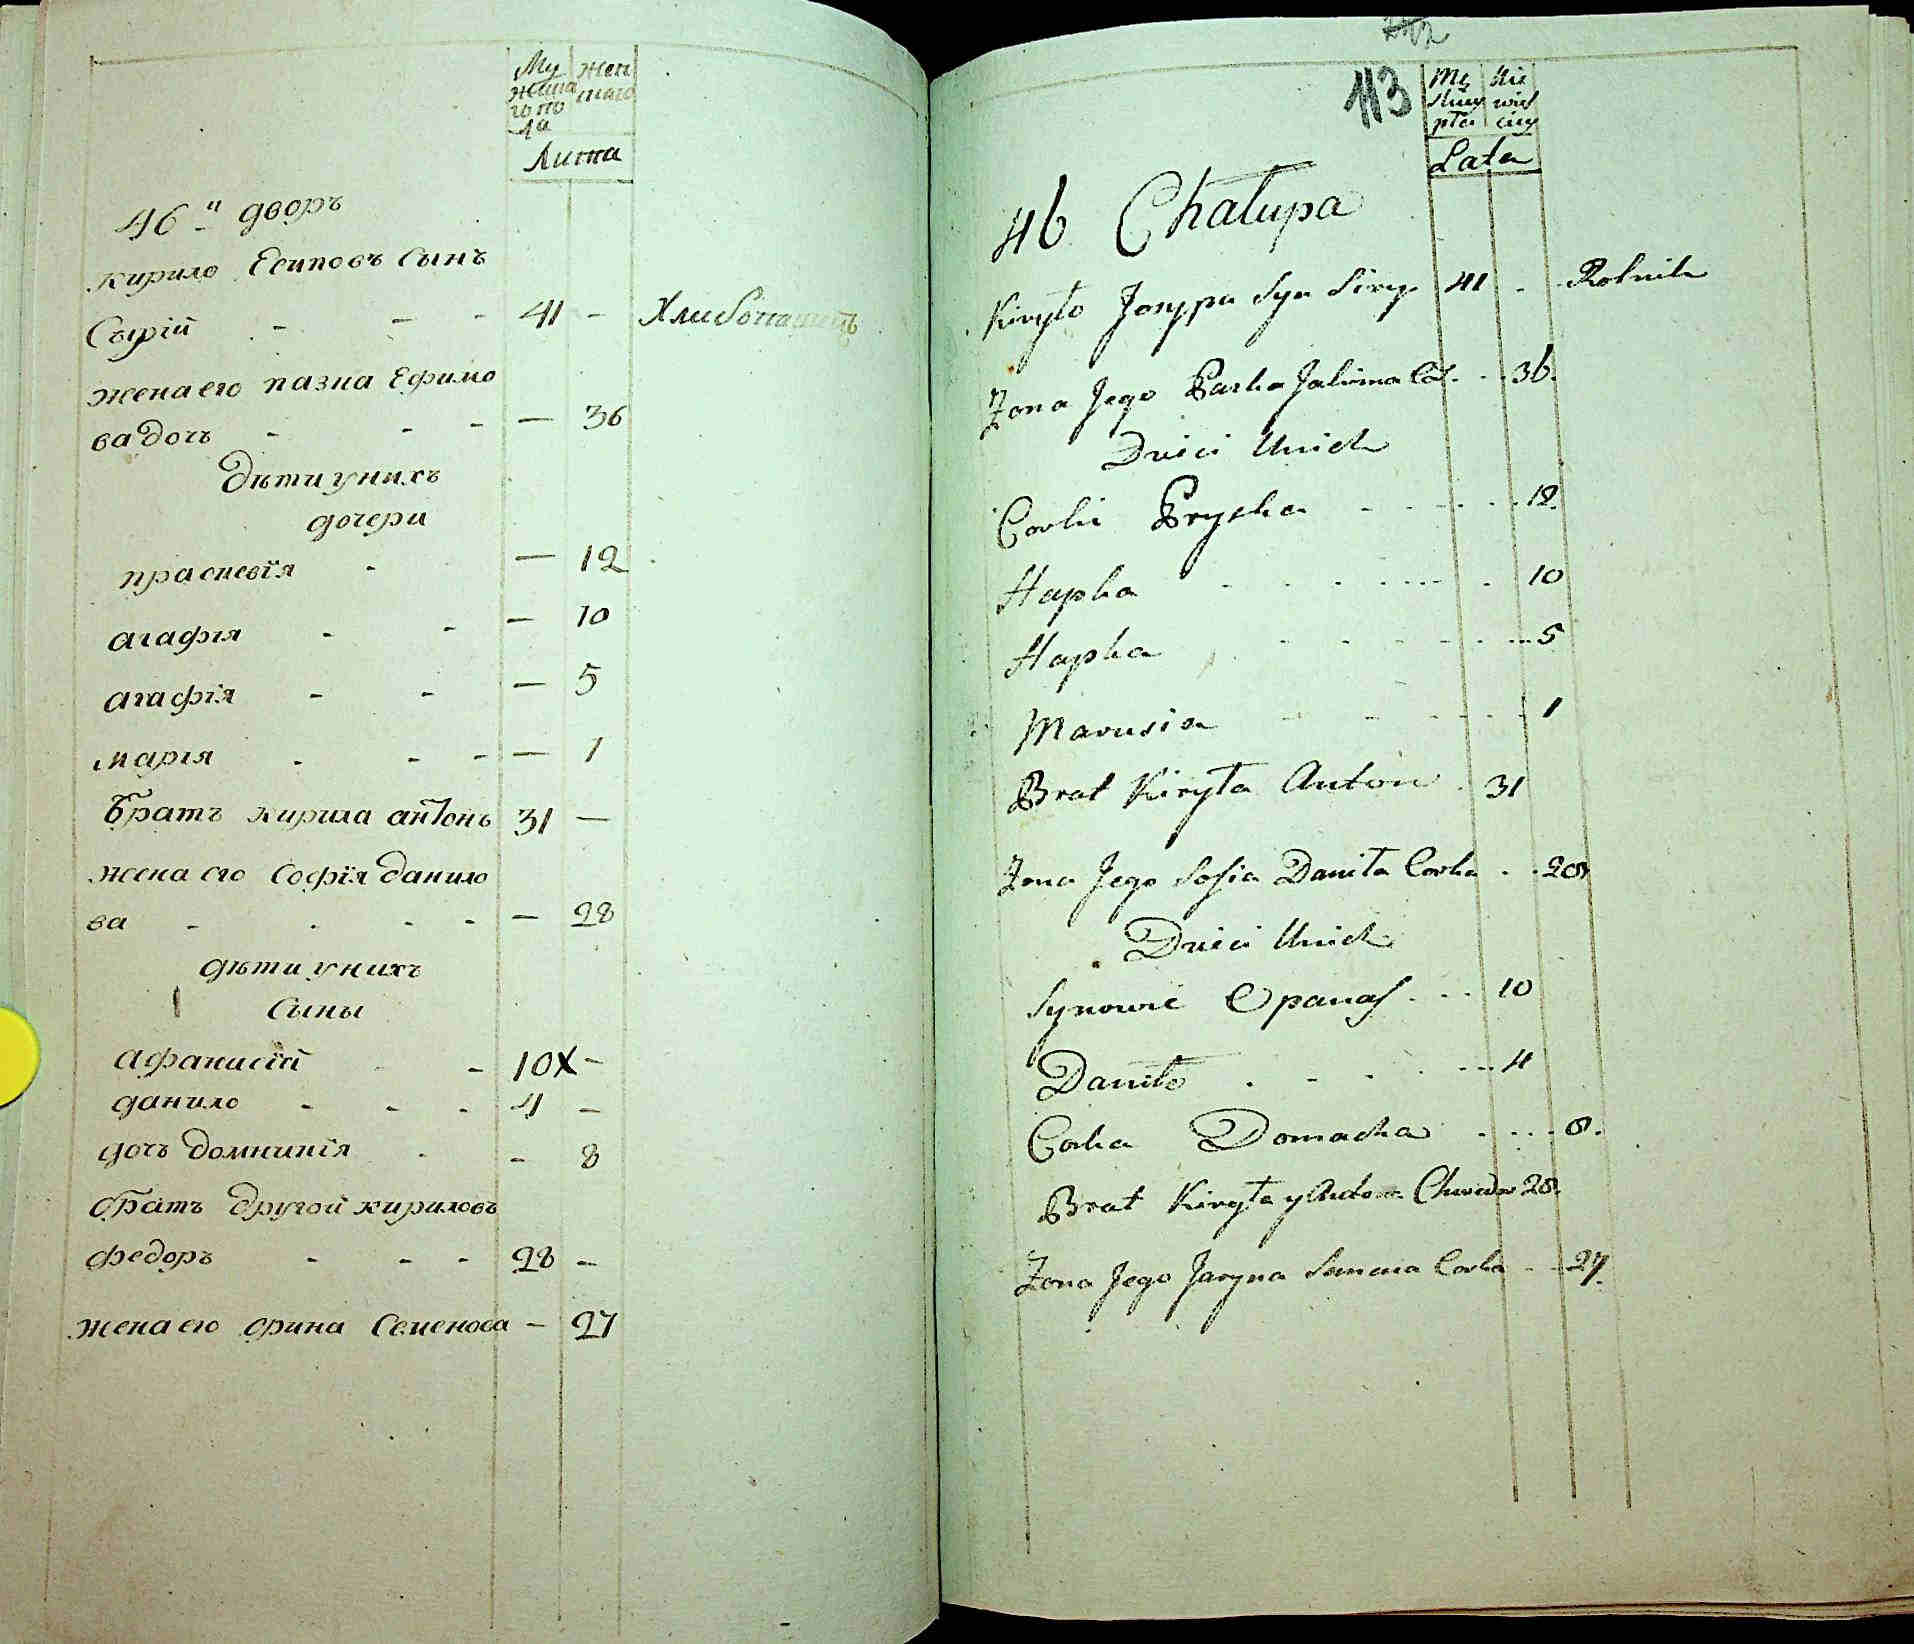 Му жеска го по ла
жен скаго
Лѣта
46 й дворъ
кирило Есиповъ сынъ
Сѣрій - - - 41 - Хлибопашецъ
жена его пазна Ефимо
ва дочь - - - — 36
дѣти у нихъ
дочери
праскевїя - — 12
агафїя - - — 10
агафїя - - — 5
марїя - - - — 1
братъ кирила антонъ 31 —
жена его Софїя данило
ва - - - - — 28
дѣти у нихъ
Сыны
афанисїй - 10 х -
данило - - - 4 -
дочь домникїя - - 8
братъ другой кириловъ
федоръ - - - 28 -
жена его орина Семенова - 27
113
Mę skiey płci
Nie wieś ciey
Lata
46 Chałupa
Kiryło Josyppa Syn Siry 41 - Rolnik
Żona Jego Paska Jakima Cór. - - 36.
Dzieci Unich
Corki Pryska - - - - 12.
Hapka - - - - 10
Hapka - - - - 5
Marusia - - - - 1
Brat Kiryła Anton . 31
Żona Jego Sofia Daniła Corka - - 28
Dzieci Unich
Synowie Opanas - - - 10
Daniło - - - - 4
Corka Domacha - - - 8.
Brat Kiryła y Antona Chwedor 28.
Żona Jego Jaryna Semena Corka - - 27.